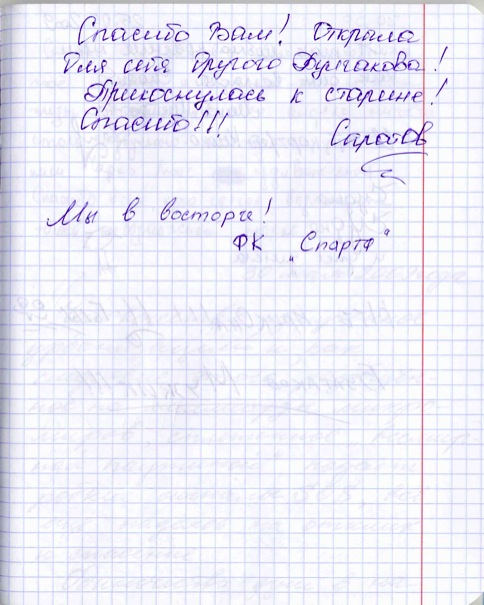 Спасибо Вам! Открыла
для себя другого Булгакова!
Прикоснулась к старине!
Спасибо!!!
Саратов
Мы в восторге!
ФК "Спарта"